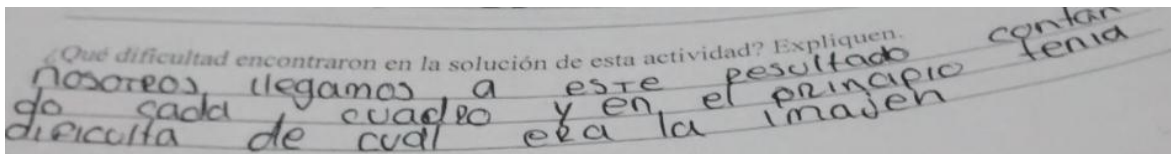 ¿Qué dificultad encontraron en la solución de esta actividad? Expliquen.
nosoreos llegamos a este resultado contan
do cada cuadro y en el principio tenia
dificulta de cual era la imajen